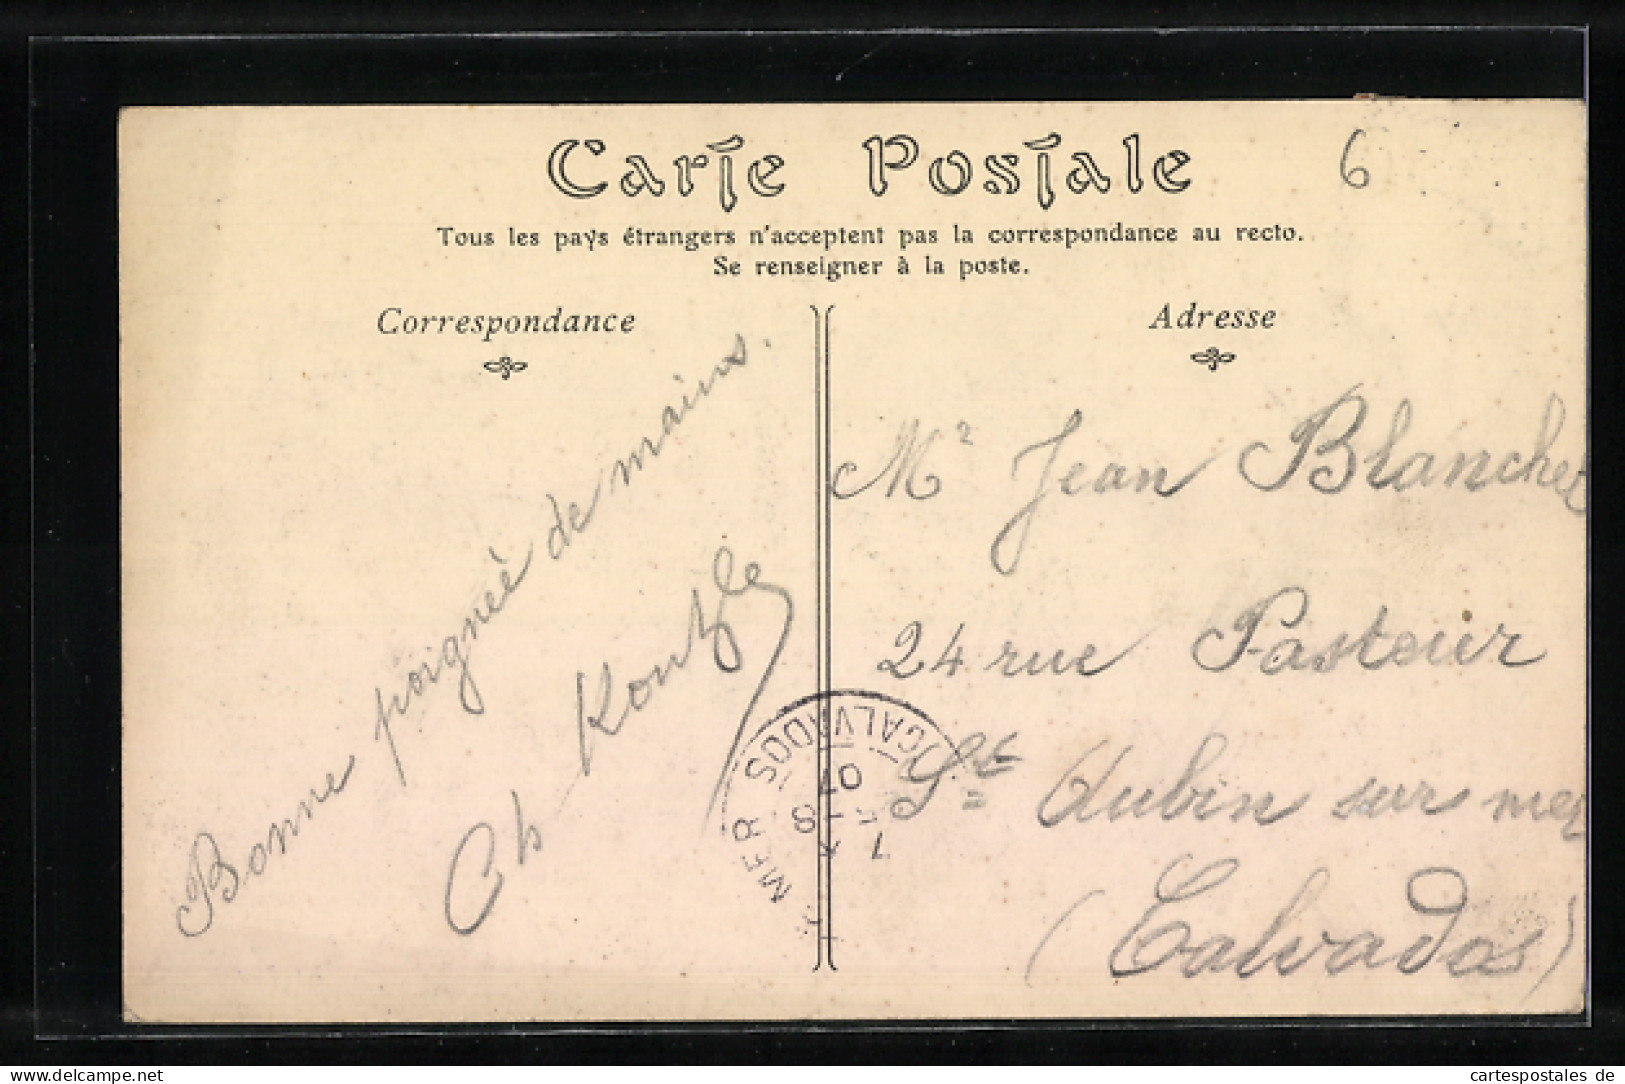 Carte Postale
6
Tous les pays étrangers n'acceptent pas la correspondance au recto.
Se renseigner à la poste.
Correspondance
Bonne poignée de mains.
Ch
Adresse
Mr Jean Blanchet
24 rue Pasteur
St Aubin sur mer
(Calvados)
MER CALVADOS
07
www.cartespostales.de
cartespostales de